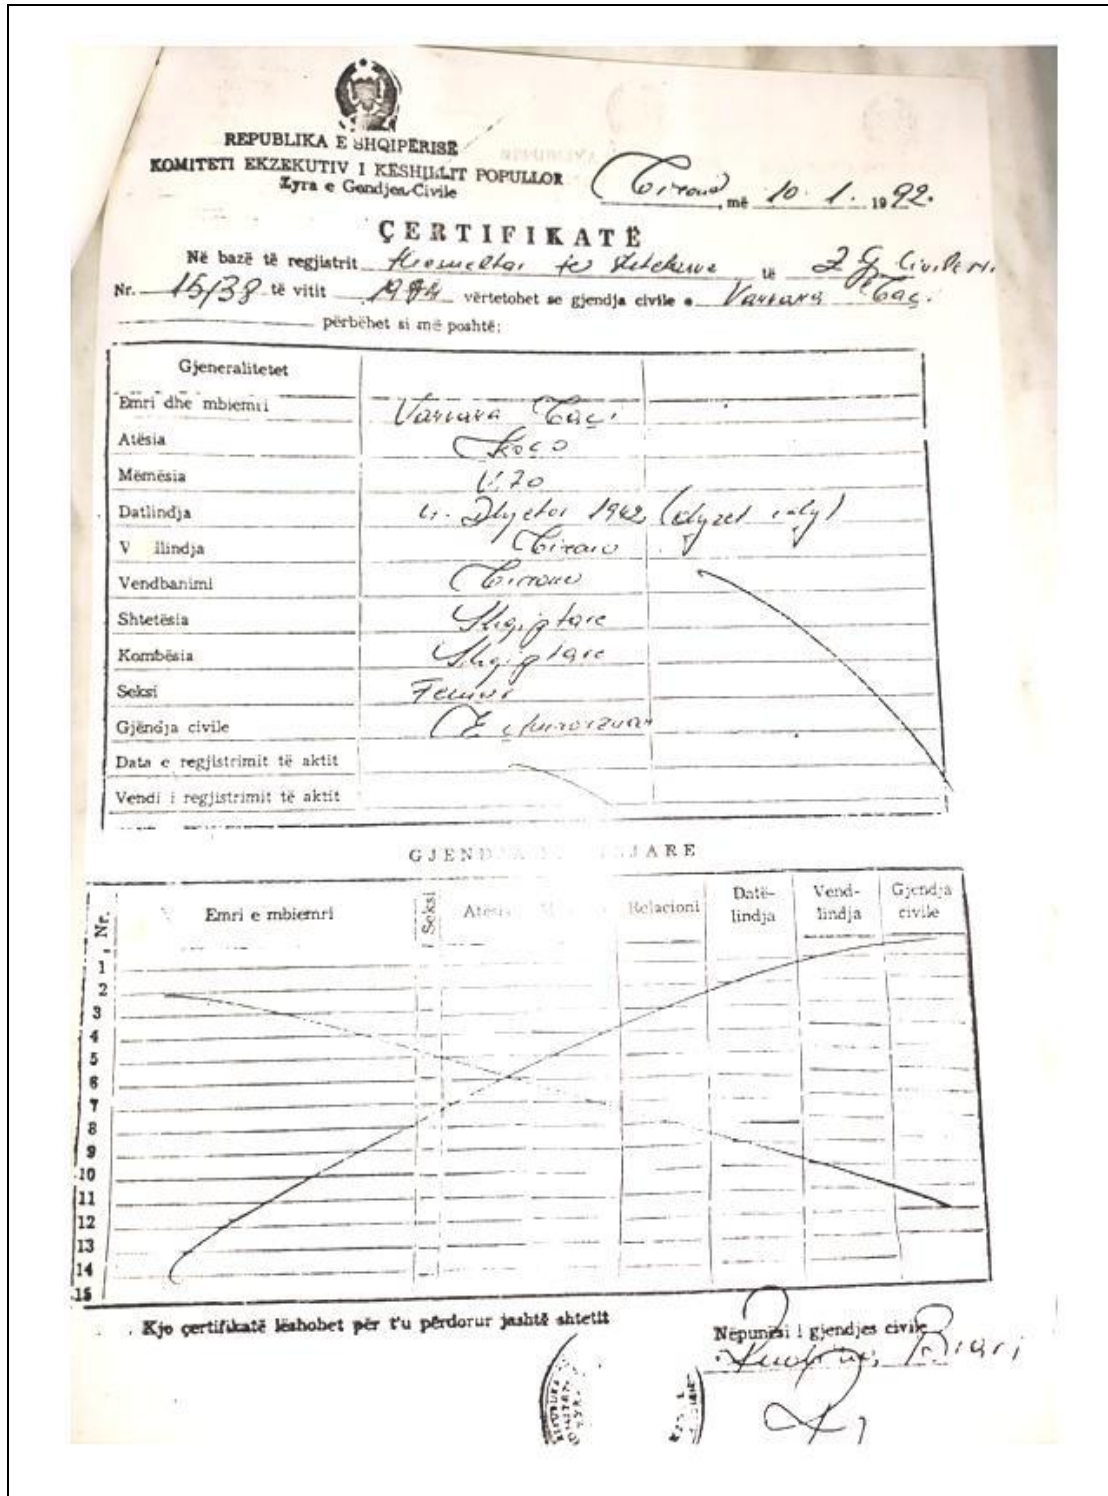 REPUBLIKA E SHQIPËRISË
KOMITETI EKZEKUTIV I KËSHILLIT POPULLOR
Zyra e Gendjes Civile
Tiranë, më 10. 1. 1992.
ÇERTIFIKATË
Në bazë të regjistrit themeltar të shtetësve të Z Gj Civile Nr.
Nr. 15/38 të vitit 1974 vërtetohet se gjendja civile e Varvara Taçi.
përbëhet si më poshtë:
Gjeneralitetet
Emri dhe mbiemri Varvara Taçi
Atësia Koço
Mëmësia
Datlindja 4. Dhjetor 1942 (dyzet e dy)
V llindja Tiranë
Vendbanimi Tiranë
Shtetësia Shqiptare
Kombësia Shqiptare
Seksi Femër
Gjëndja civile E
Data e regjistrimit të aktit
Vendi i regjistrimit të aktit
GJEND JARE
Nr. Emri e mbiemri Seksi Atësi Relacioni Datë-lindja Vend-lindja Gjendja civile
1
2
3
4
5
6
7
8
9
10
11
12
13
14
15
Kjo çertifikatë lëshohet për t'u përdorur jashtë shtetit
Nëpunësi i gjendjes civile